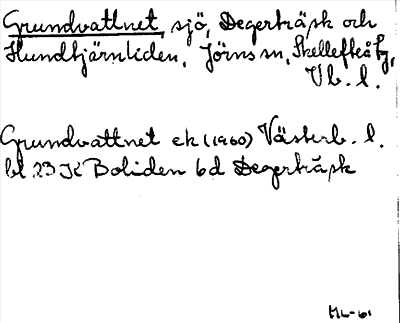 Grundvattnet, sjö, Degerträsk och
Hundtjärnliden, Jörns sn, Skellefteå tg,
Vb. l.
Grundvattnet ek (1960) Västerb. l.
bl 23 K Boliden 6d Degerträsk
ML-61